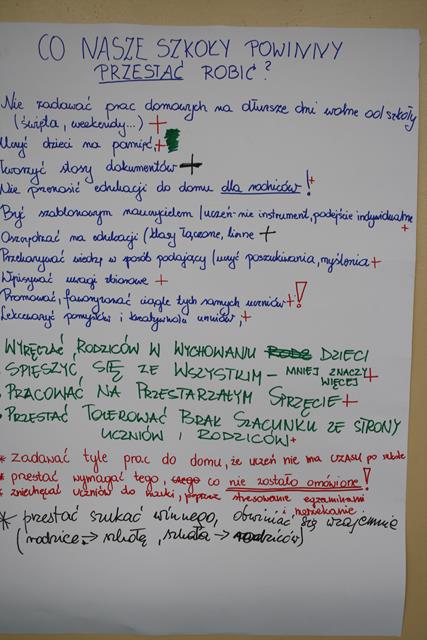 CO NASZE SZKOŁY POWINNY
PRZESTAĆ ROBIĆ?
Nie zadawać prac domowych na dłuższe dni wolne od szkoły
(święta, weekendy...) +
Uczyć dzieci na pamięć. +
Tworzyć stosy dokumentów +
Nie przenosić edukacji do domu dla rodziców! +
Być szablonowym nauczycielem / uczeń-nie instrument, podejście indywidualne
+
Oszczędzać na edukacji / klasy łączone, inne +
Przekazywać wiedzę w sposób podający / uczyć poszukiwania, myślenia +
Wpisywać uwagi zbiorowe +
Promować, faworyzować ciągle tych samych uczniów +!
Lekceważyć pomysłów i kreatywności uczniów, +
WYRĘCZAĆ RODZICÓW W WYCHOWANIU DZIECI
SPIESZYĆ SIĘ ZE WSZYSTKIM - MNIEJ ZNACZY
WIĘCEJ +
PRACOWAĆ NA PRZESTARZAŁYM SPRZĘCIE +
PRZESTAĆ TOLEROWAĆ BRAK SZACUNKU ZE STRONY
UCZNIÓW I RODZICÓW +
* zadawać tyle prac do domu, że uczeń nie ma czasu po szkole
* przestać wymagać tego, co nie zostało omówione!
* zniechęcać uczniów do nauki, poprzez stresowanie egzaminami
i narzekanie.
* przestać szukać winnego, obwiniać się wzajemnie
(rodzice → szkołę, szkoła → rodziców)